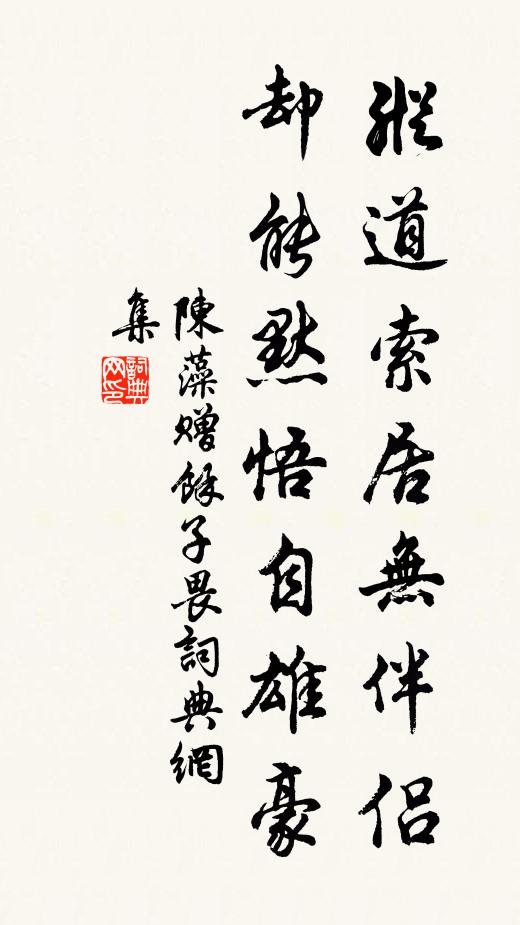 縱道索居無伴侶
却能默悟自雄豪
陳藻贈餘子畏詞典網
集
詞典
网印